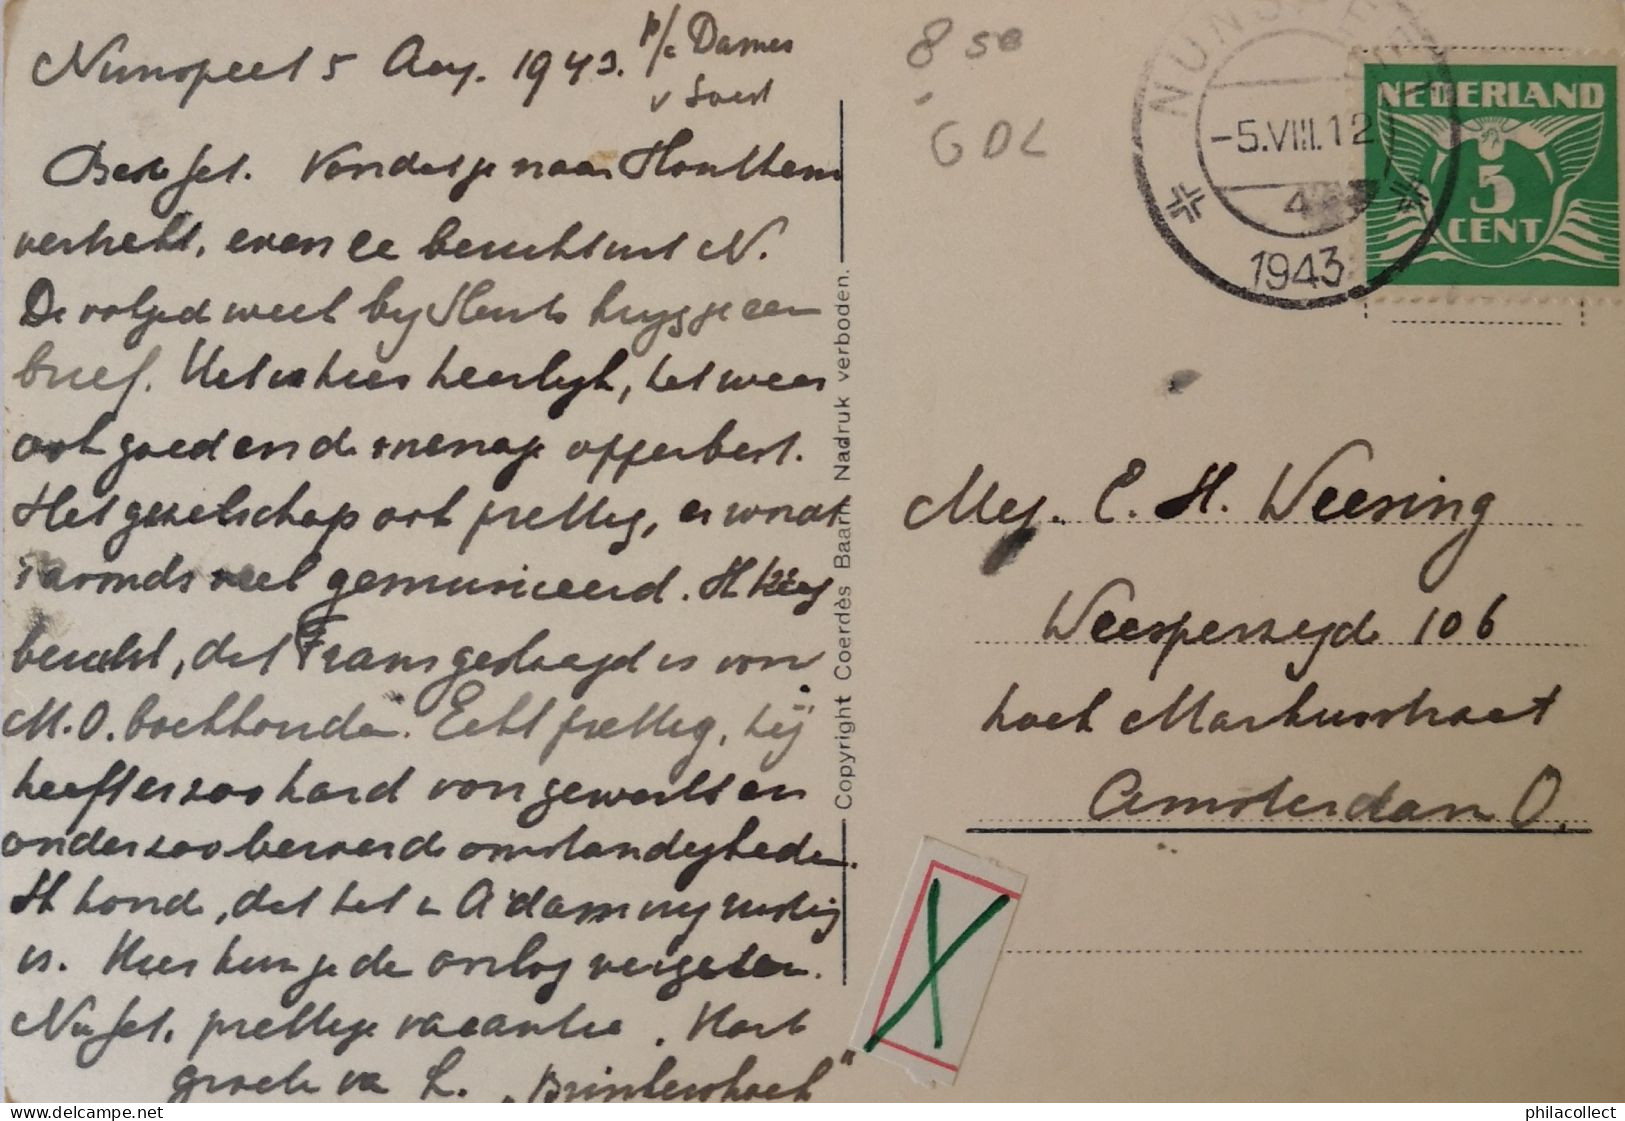 Nunspeet 5 Aug. 1943. p/a Dames
v Soest
Beste Jet. Voordat je naar Houthem
vertrekt, even een bericht uit N.
De volgend week bij krijg je een
brief. Het is hier heerlijk, het weer
ook goed en de menage opperbest.
Het gezelschap ook prettig, er wordt
's avonds veel gemusiceerd. Ik kreeg
bericht, dat Frans geslaagd is voor
M.O. boekhouden. Echt prettig, hij
heeft er zoo hard voor gewerkt en
onder zoo bezwaarde omstandigheden.
Ik hoorde, dat het in A'dam nog rustig
is. Hier kun je de oorlog vergeten.
Nu Jet, prettige vacantie. Hart
groeten van L.
8 50
GDL
NUNSPEET
-5.VIII.12
4
1943
NEDERLAND
5
CENT
Mej. C. H. Weesing
Weesperzijde 106
hoek Markusstraat
Amsterdam O.
Copyright Coerdès Baarn Nadruk verboden.
philacollect - delcampe.net